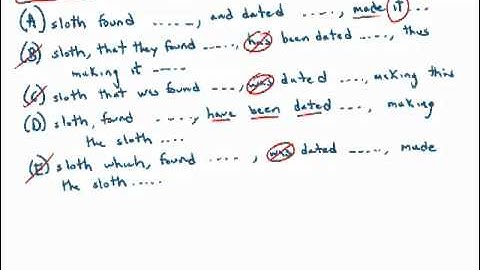 (A) sloth found ....., and dated ...., made it ..
(B) sloth, that they found ...., has been dated ...., thus
making it .....
(C) sloth that was found ...., was dated ...., making this
(D) sloth, found ...., have been dated ...., making
the sloth ....
(E) sloth which, found ...., was dated ....., made
the sloth .....